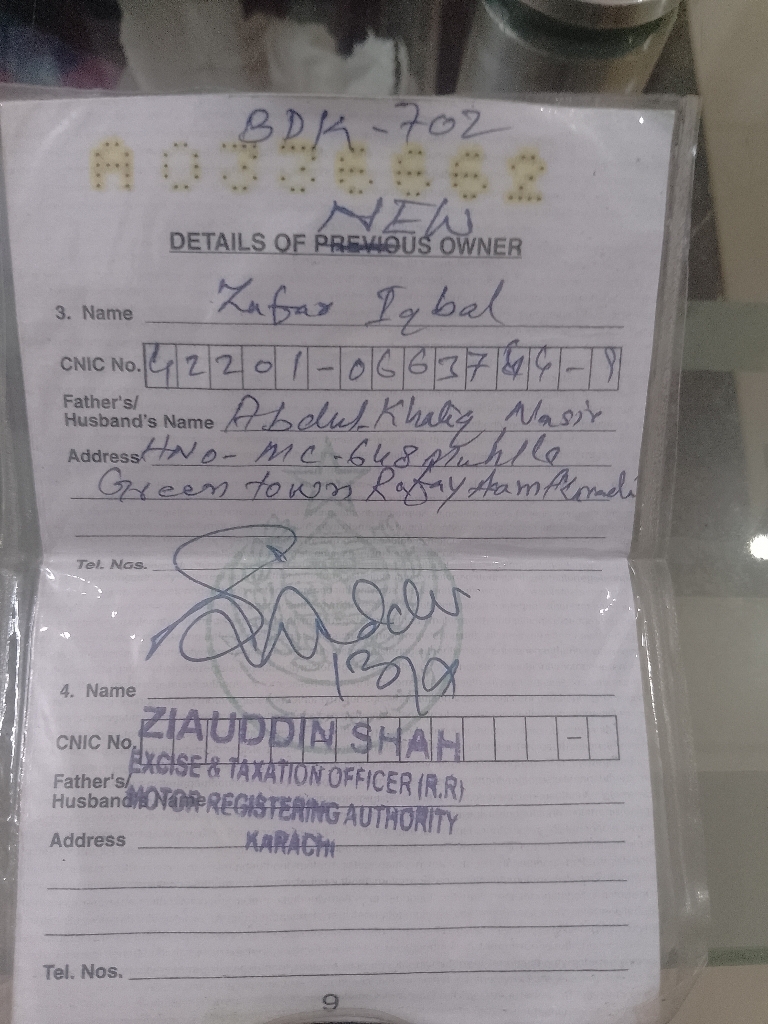 BDK-702
A0336662
NEW
DETAILS OF PREVIOUS OWNER
3. Name Zafar Iqbal
CNIC No. 42201-0663744-9
Father's/
Husband's Name Abdul Khaliq Nasir
Address HNO- MC-648
Green town Rafay Aam
Tel. Nos.
4. Name
CNIC No. -
ZIAUDDIN SHAH
EXCISE & TAXATION OFFICER (R.R)
Father's/
Husband's Name
MOTOR REGISTERING AUTHORITY
Address
KARACHI
Tel. Nos.
9